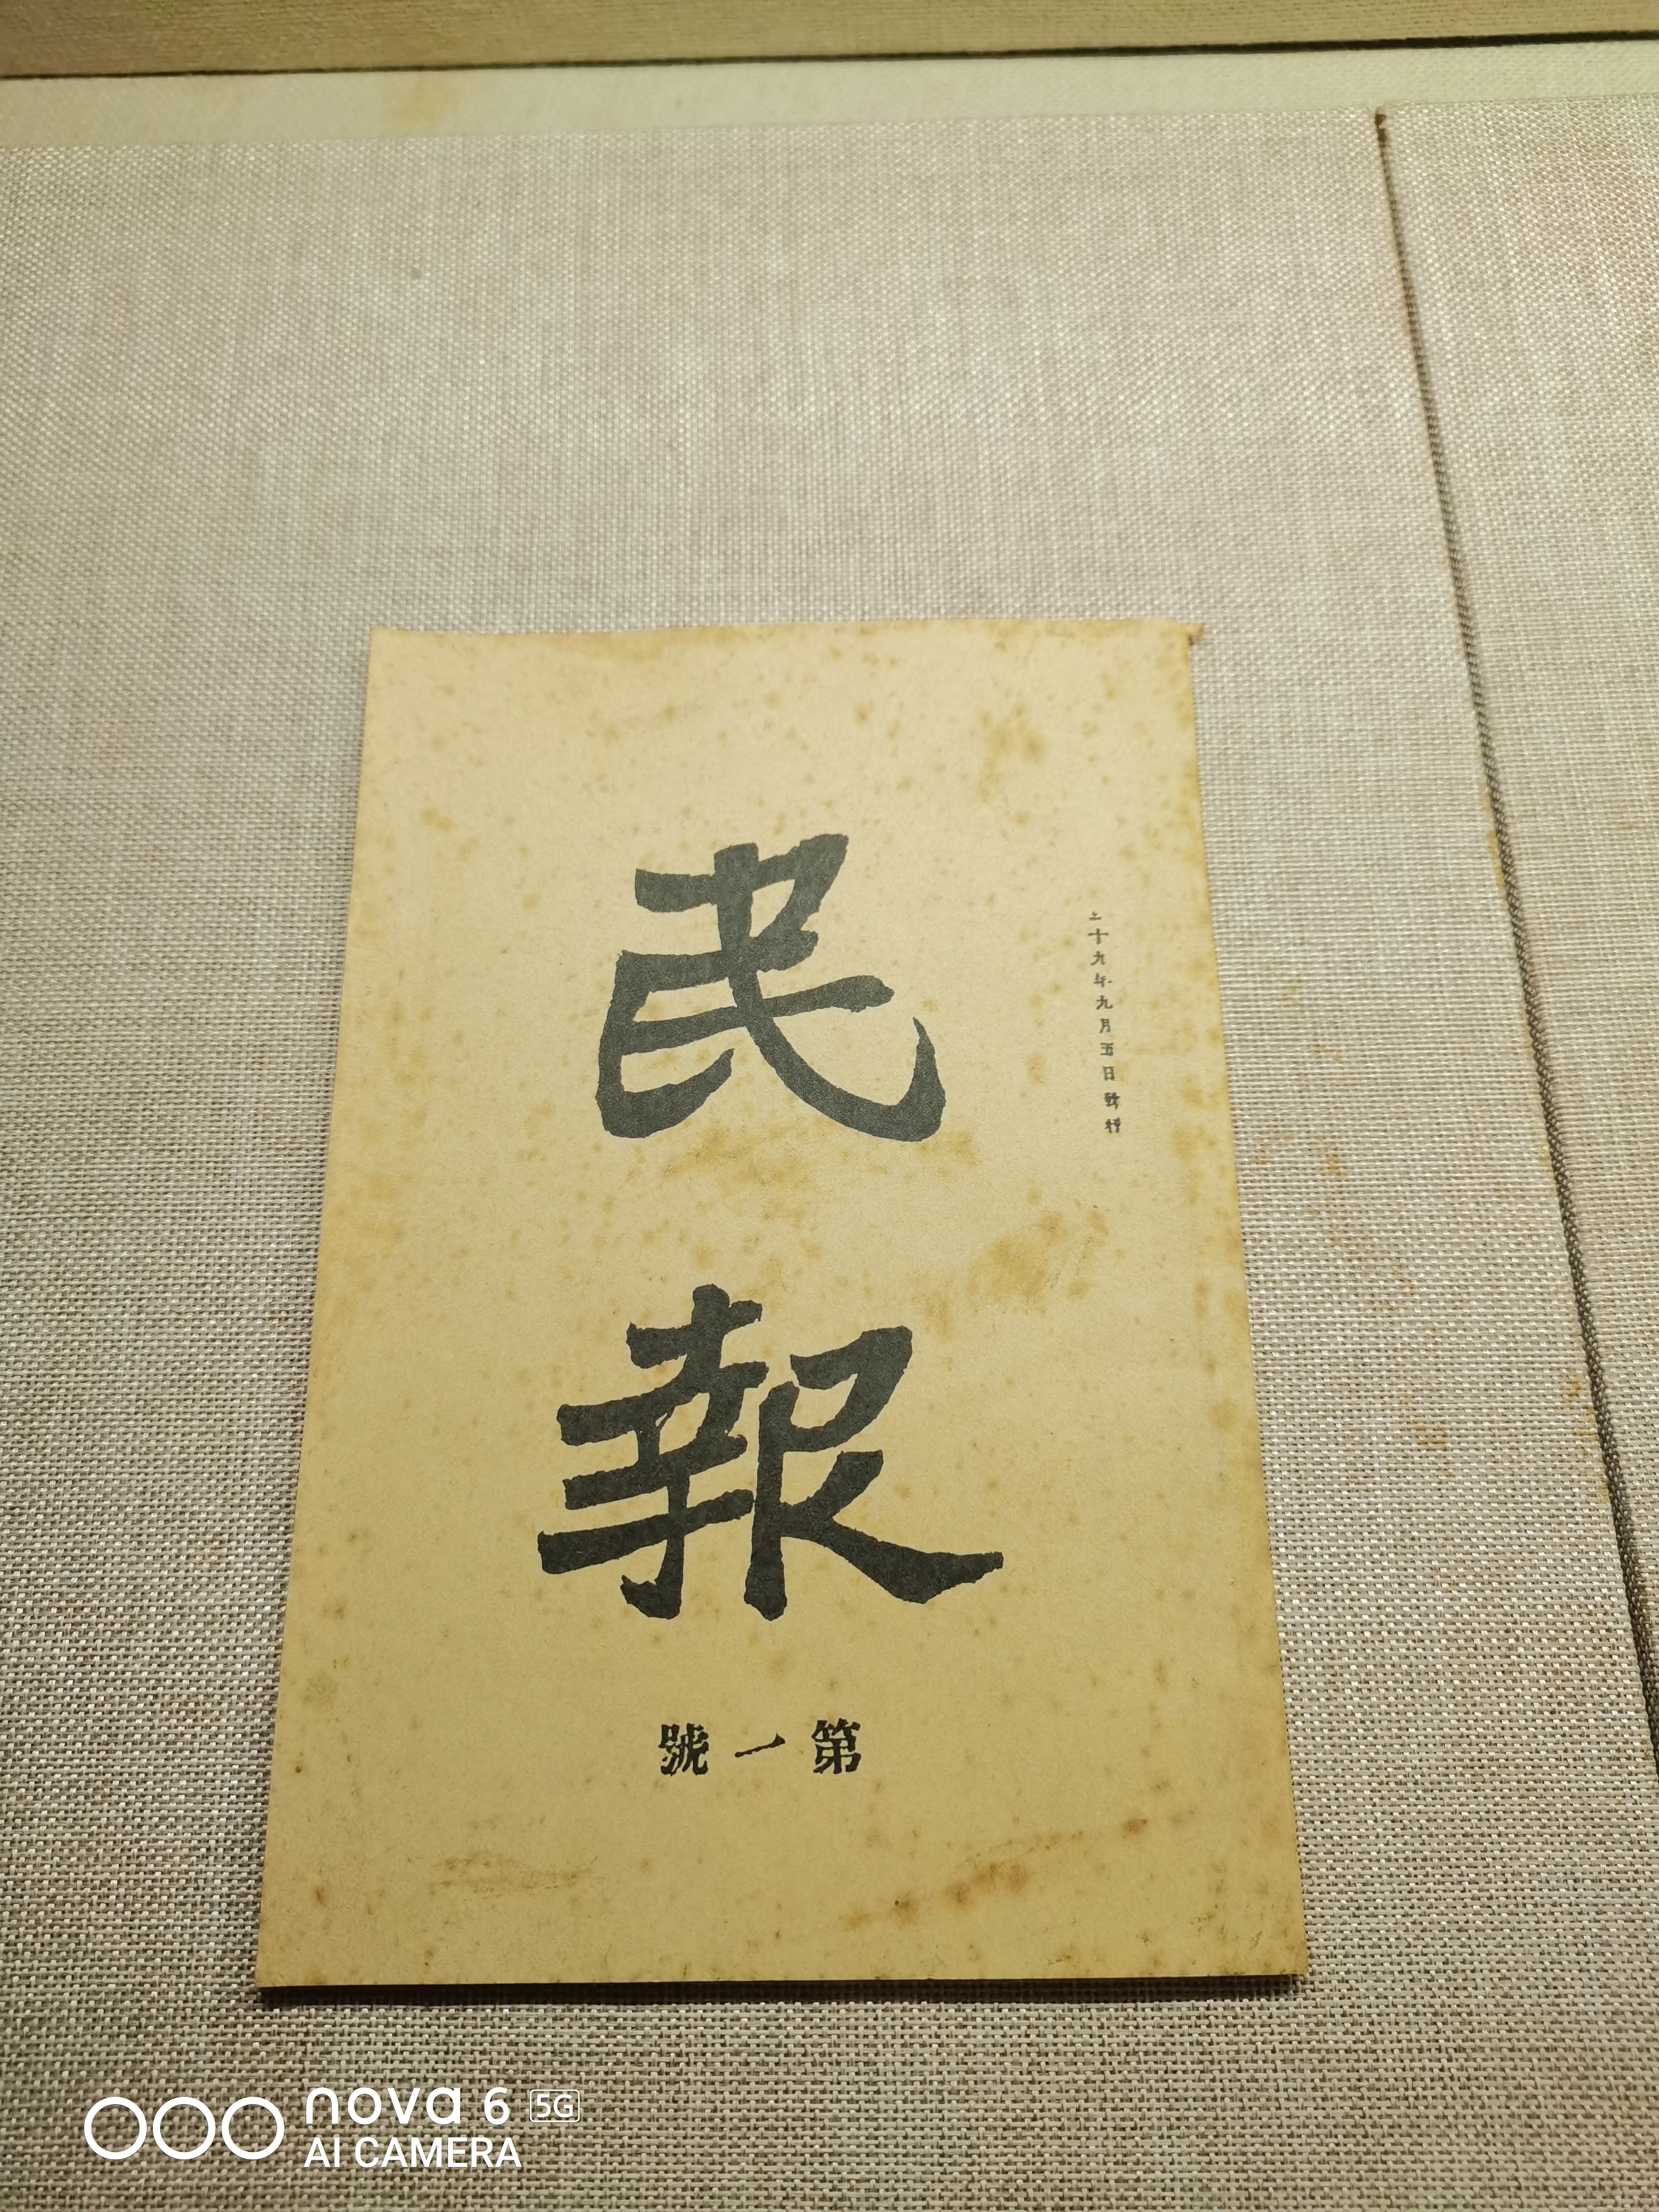 二十九年九月五日發行
民報
第一號
nova 6 5G
AI CAMERA